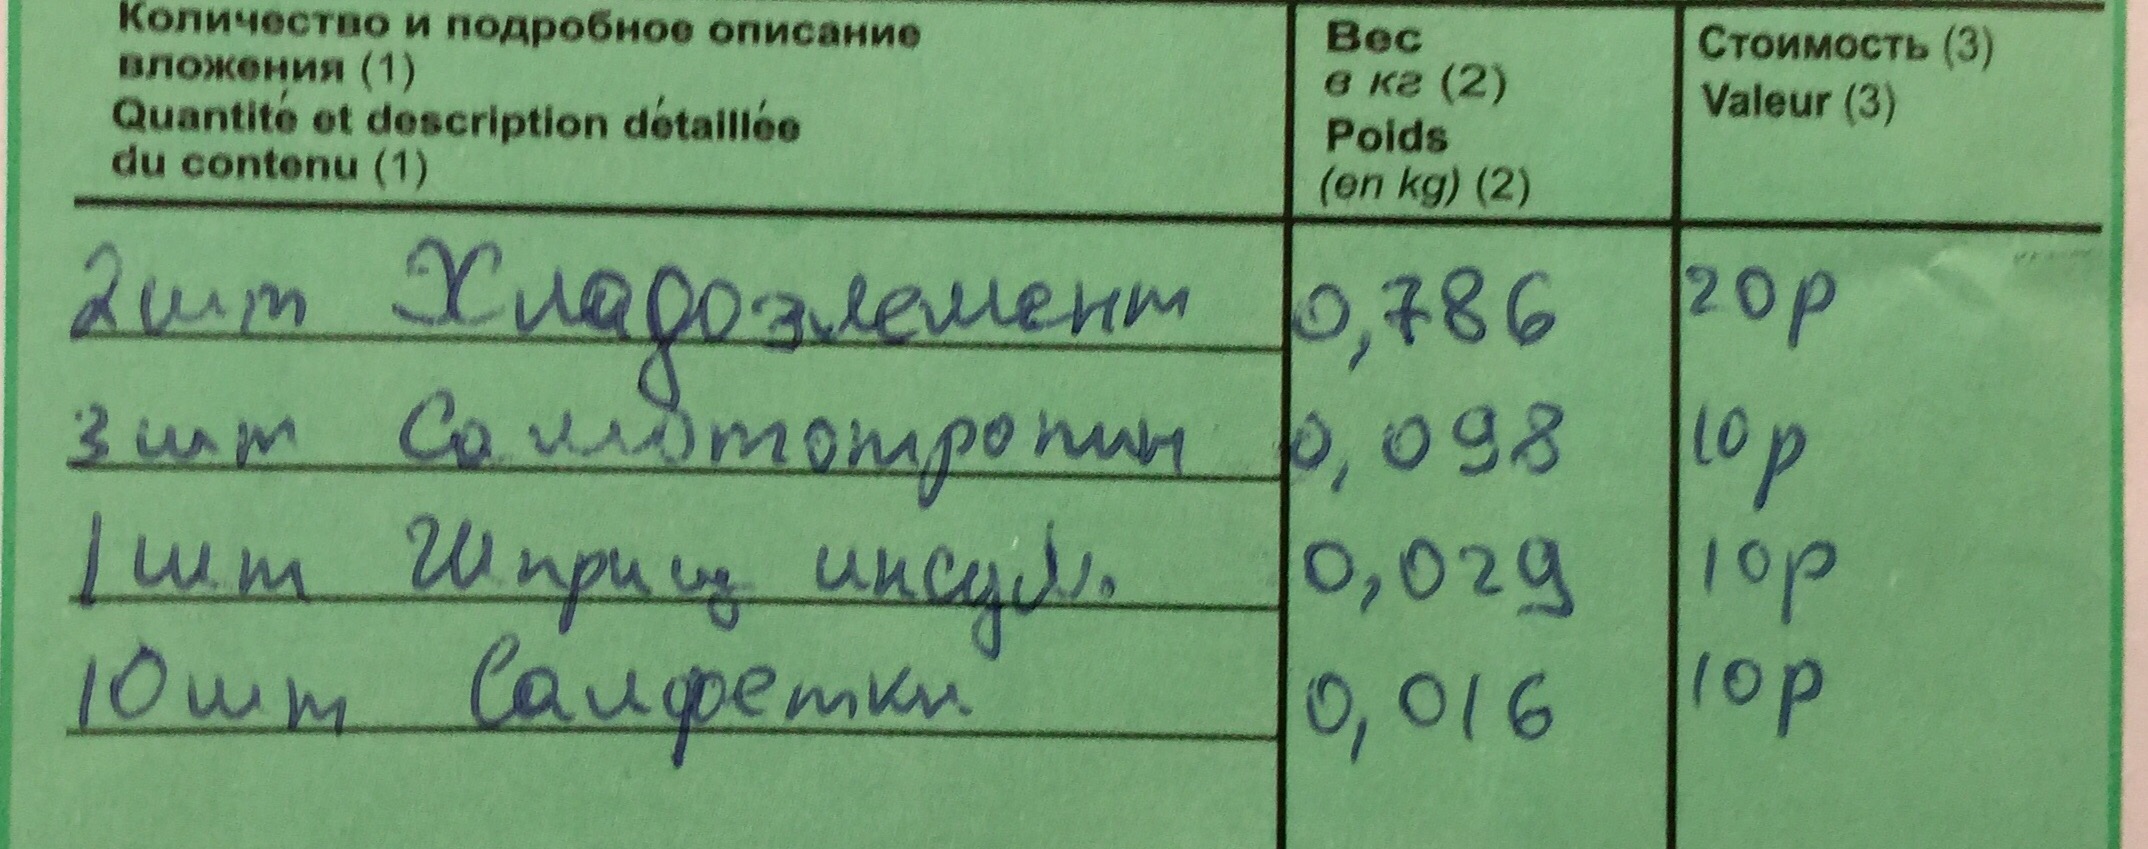 Количество и подробное описание
вложения (1)
Quantité et description détaillée
du contenu (1)
Вес
в кг (2)
Poids
(en kg) (2)
Стоимость (3)
Valeur (3)
2 шт Хладоэлемент 0,786 20р
3 шт Соматотропин 0,098 10р
1 шт Шприц инсул. 0,029 10р
10 шт Салфетки 0,016 10р